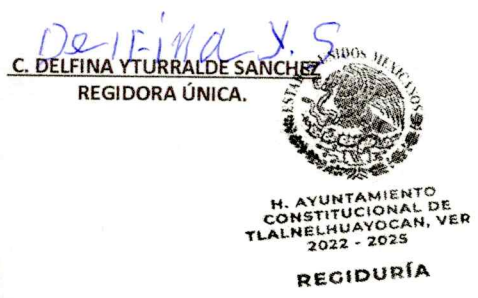 Delfina Y. S
C. DELFINA YTURRALDE SANCHEZ
REGIDORA ÚNICA.
ESTADOS UNIDOS MEXICANOS
H. AYUNTAMIENTO
CONSTITUCIONAL DE
TLALNELHUAYOCAN, VER
2022 - 2025
REGIDURÍA